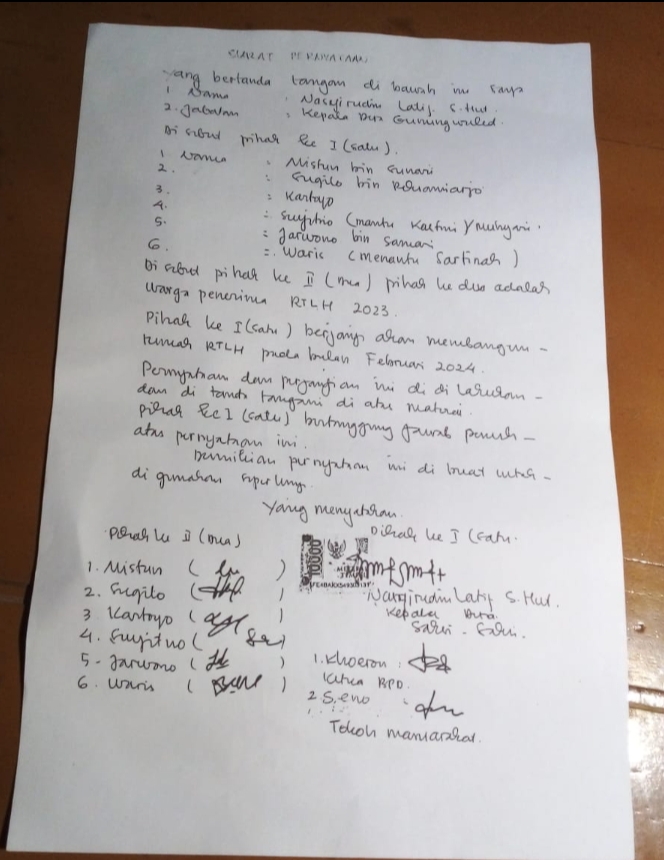 SURAT PERNYATAAN
Yang bertanda tangan di bawah ini saya
1 Nama : Nasyirudin Latif. S.Hut.
2. Jabatan : Kepala Desa Gunungwuled.
Di sebut pihak ke I (satu).
1. Nama : Mistun bin Sunari
2. : Sugito bin
3. : Kartoyo
4. : Sujitno (mantu Kartini / Muhyani.
5. : Jarwono bin Samari
6. : Waris (menantu Sartinah)
Di sebut pihak ke II (dua) pihak ke dua adalah
warga penerima RTLH 2023.
Pihak ke I (satu) berjanji akan membangun -
rumah RTLH pada bulan Februari 2024.
Pernyataan dan perjanjian ini di di lakukan -
dan di tanda tangani di atas materai.
pihak ke I (satu) bertanggung jawab penuh -
atas pernyataan ini.
Demikian pernyataan ini di buat untuk -
di gunakan seperlunya
Yang menyatakan.
Pihak ke II (dua)
Pihak ke I (satu.
1. Mistun ( )
2. Sugito ( )
3 Kartoyo ( )
4. Sujitno ( )
5. Jarwono ( )
6. Waris ( )
10000
Nasyirudin Latif S.Hut.
Kepala Desa
Saksi - Saksi.
1. Khoeron :
Ketua BPD.
2 Seno :
Tokoh masyarakat.